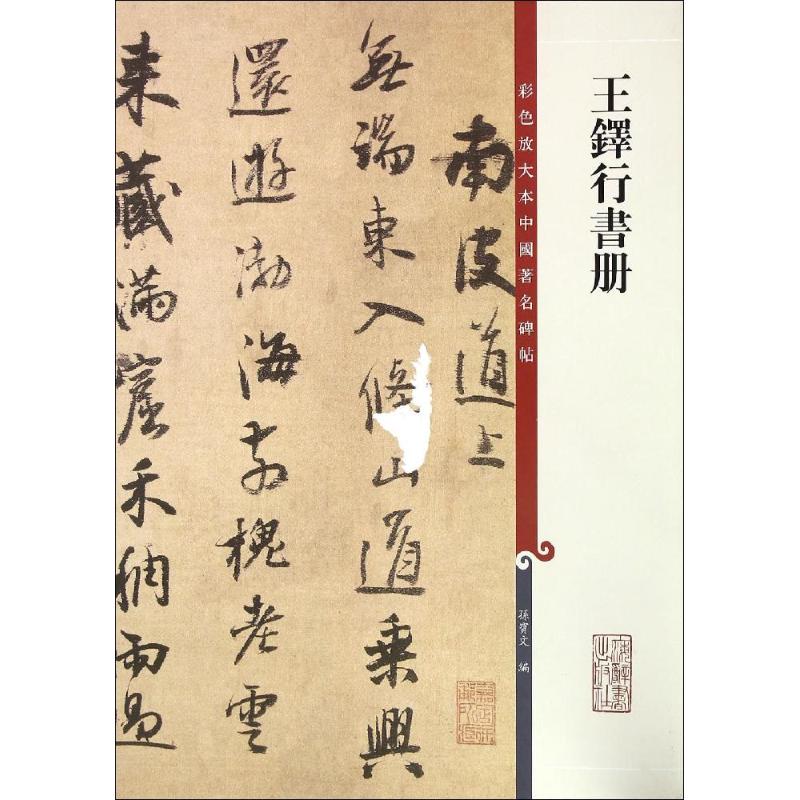 王鐸行書册
彩色放大本中國著名碑帖
孫寶文 編
上海辭書出版社
南皮道上
無端東入條山道乘興
還遊渤海前槐老雲
來藏滿窟禾稠雨過